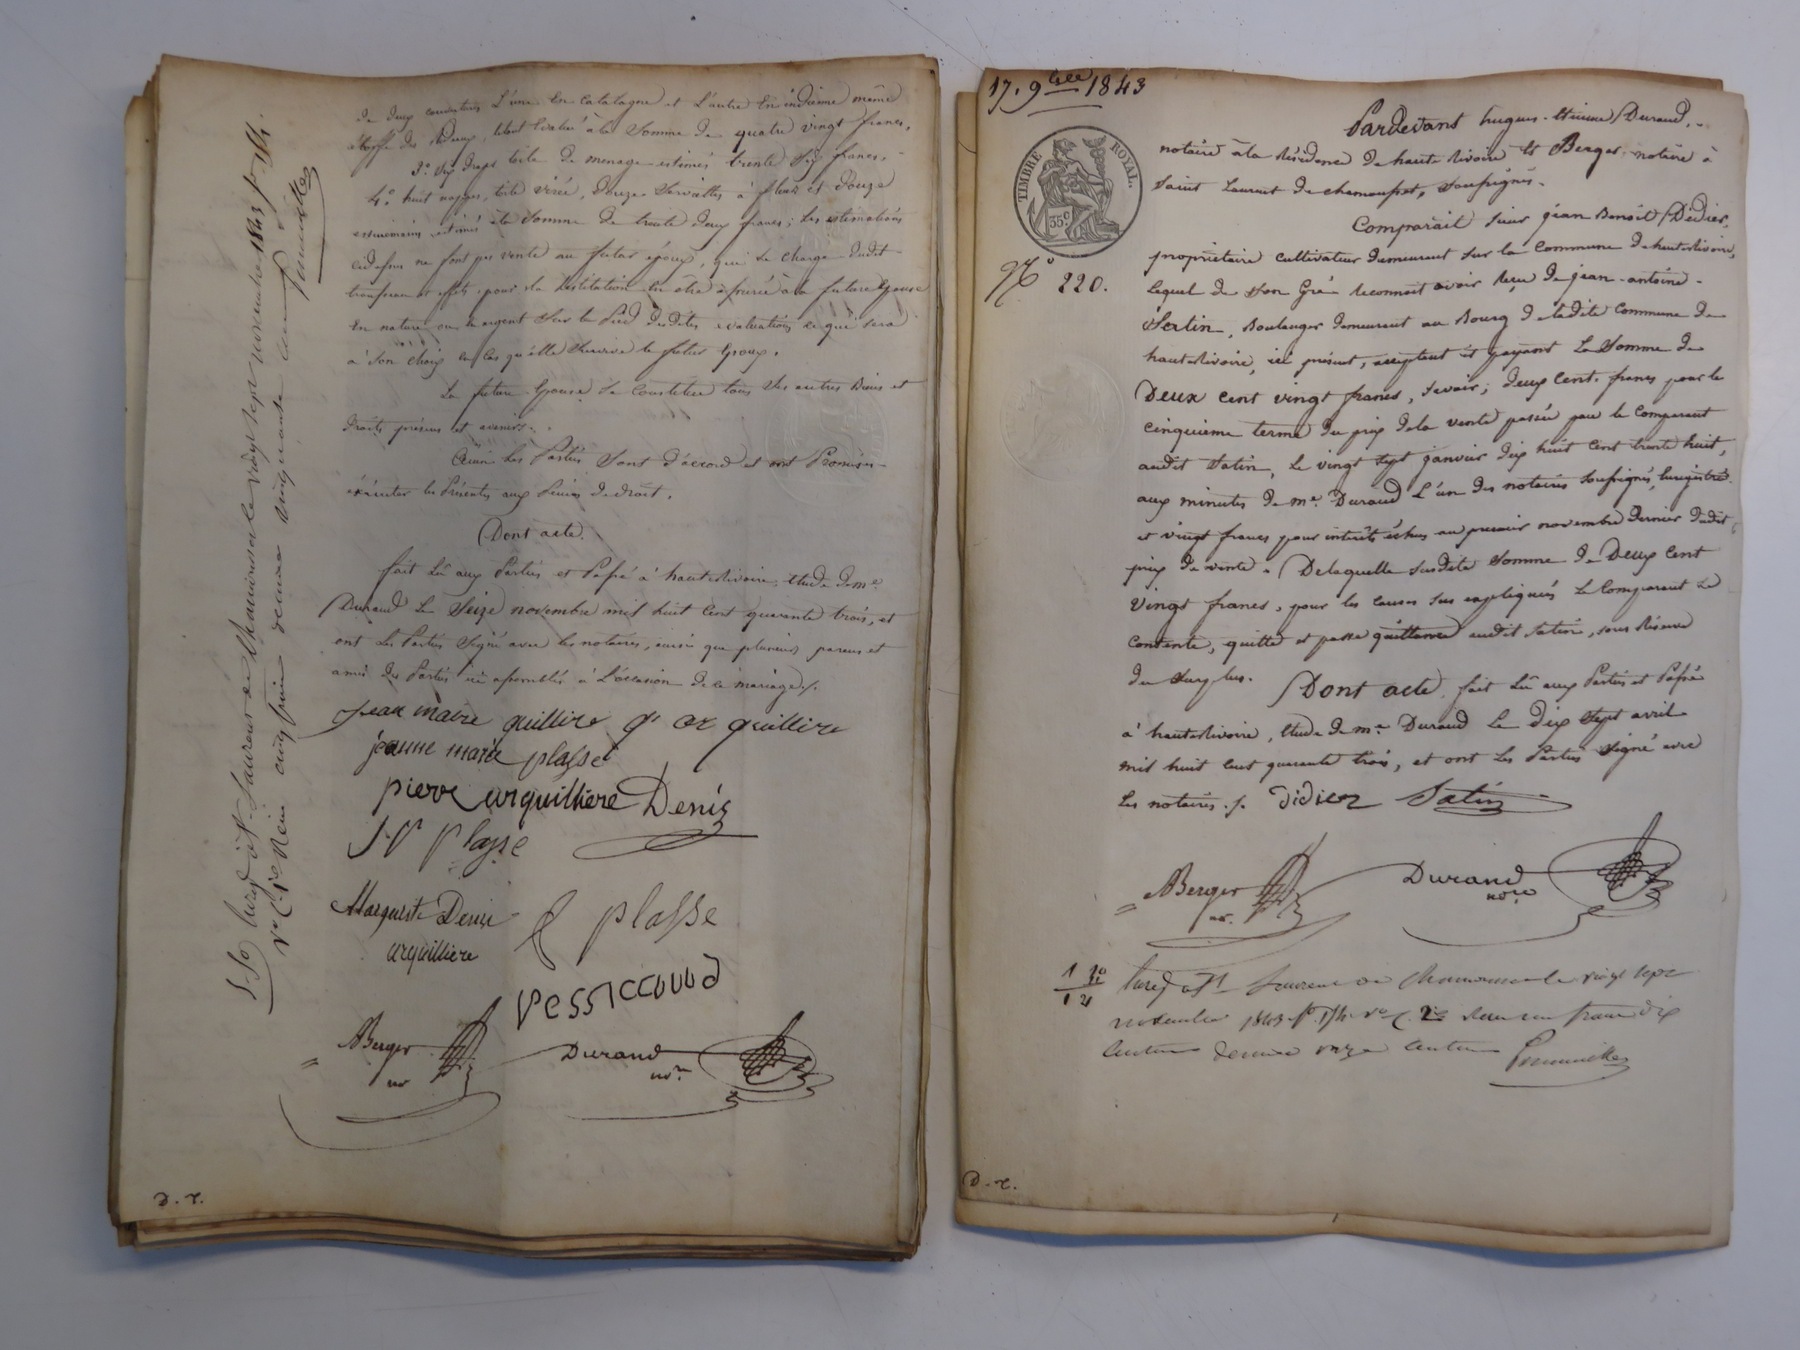 de deux couvertures L'une en catalogne et L'autre en indienne même
étoffe des rideaux, le tout évalué à la Somme de quatre vingt francs,
3° Six draps toile de menage estimés trente six francs,
4° huit nappes, toile virée, douze Serviettes à fleur et Douze
estimés à la Somme de trente deux francs; Les estimations
ci-dessus ne font pas vente au futur époux, qui Se Charge dudit
trousseau et effets, pour la Restitution en être assurée à la future Epouse
En nature ou en argent Sur le Pied desdites évaluations ce qui Sera
à Son choix en Cas qu'elle Survive le futur Epoux.
La future Epouse Se Constitue tous Ses autres Biens et
Droits présens et avenirs.
Ainsi Les Parties Sont d'accord et ont Promis
exécuter les Présentes aux Peines de droit.
Dont acte.
fait Lû aux Parties et Passé à hauterivoire, étude de me
Durand Le Seize novembre mil huit Cent quarante trois, et
ont Les Parties Signé avec les notaires, ainsi que plusieurs parens et
amis des Parties ici assemblés à L'occasion de ce mariage./.
jean marie guillire
jeanne marie plasse
pierre arquilliere Denis
plasse
Marguerite Denis plasse
arquilliere
Berger Durand
nre nre
D. r.
Enreg. à St Laurent de Chamousset le vingt Sept novembre 1843 fo 174.
Reçu cinq francs décime cinquante centimes
17. 9bre 1843
TIMBRE ROYAL.
35c
No 220.
Pardevant hugues-Etienne Durand,
notaire à la Résidence de haute Rivoire & Berger, notaire à
Saint Laurent de chamousset, Soussignés.
Comparait Sieur jean Benoît Didier,
propriétaire cultivateur demeurant sur la Commune de hauterivoire,
Lequel de Son Gré Reconnoit avoir reçu de jean-antoine
Satin, Boulanger demeurant au Bourg de ladite Commune de
hauterivoire, ici présent, acceptant et payant La Somme de
Deux cent vingt francs, Savoir; deux Cent francs pour le
cinquième terme du prix de la vente passée par le Comparant
audit Satin, Le vingt Sept janvier dix huit Cent trente huit,
aux minutes de me Durand L'un des notaires Soussignés, Enregistré
et vingt francs pour intérêts échus au premier novembre dernier dudit
prix de vente. De laquelle Susdite Somme de Deux Cent
Vingt francs, pour les causes Sus expliqués Le Comparant Se
Contente, quitte et passe quittance audit Satin, Sous Réserve
du Surplus. Dont acte, fait Lû aux Parties et Passé
à hauterivoire, étude de me Durand Le dix Sept avril
mil huit Cent quarante trois, et ont Les Parties Signé avec
Les notaires./. Didier Satin
Berger Durand
nre nore
Enreg. à St Laurent de Chamousset le vingt sept
novembre 1843 fo 174 Reçu un franc dix
centimes décime onze centimes
D. r.